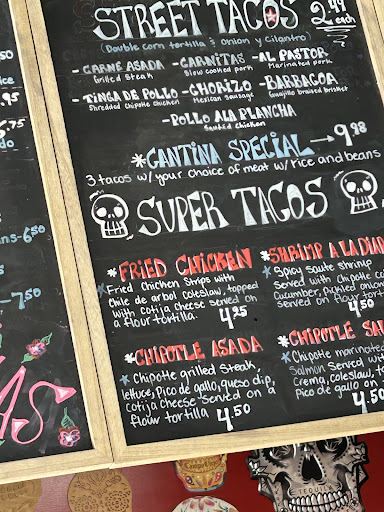 STREET TACOS 2.49 each
(Double corn tortilla & onion y cilantro)
-CARNE ASADA -CARNITAS -AL PASTOR
Grilled Steak Slow cooked pork Marinated pork
-TINGA DE POLLO -CHORIZO -BARBACOA
Shredded Chipotle Chicken Mexican Sausage Guajillo braised brisket
-POLLO ALA PLANCHA
Sautéd Chicken
*CANTINA SPECIAL → 9.98
3 tacos w/ your choice of meat w/ rice and beans
SUPER TACOS
*FRIED CHICKEN
Fried Chicken Strips with
Chile de arbol coleslaw, topped
with cotija cheese served on
a flour tortilla 4.25
*SHRIMP A LA DIA
Spicy saute shrimp
Served with Chipotle
Cucumber, pickled onion
Served on flour
4.50
*CHIPOTLE ASADA
Chipotle grilled steak,
lettuce, Pico de gallo, queso dip,
Cotija Cheese-served on a
flour tortilla 4.50
*CHIPOTLE
Chipotle
Salmon Served
Crema, coleslaw,
Pico de gallo on
4.50
-6.50
-7.50
AS
TEQUILA